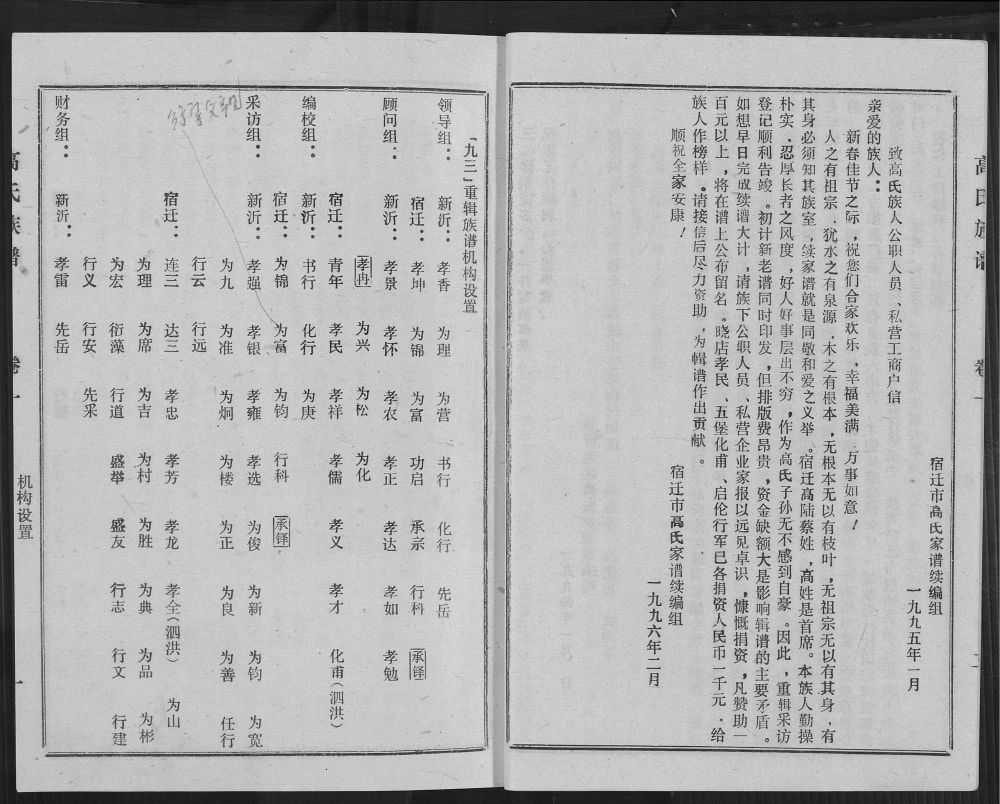 高氏族谱
卷一
二
宿迁市高氏家谱续编组
一九九五年一月
致高氏族人公职人员、私营工商户信
亲爱的族人：
新春佳节之际，祝您们合家欢乐，幸福美满，万事如意！
人之有祖宗，犹水之有泉源，木之有根本，无根本无以有枝叶，无祖宗无以有其身，有
其身必须知其族室，续家谱就是同敬和爱之义举。宿迁高陆蔡姓，高姓是首席。本族人勤操
朴实，忍厚长者之风度，好人好事层出不穷，作为高氏子孙无不感到自豪。因此，重辑采访
登记顺利告竣。初计新老谱同时印发，但排版费昂贵，资金缺额大是影响辑谱的主要矛盾。
如想早日完成续谱大计，请族下公职人员、私营企业家报以远见卓识，慷慨捐资，凡赞助一
百元以上，将在谱上公布留名。晓店孝民、五堡化甫、启伦行军已各捐资人民币一千元，给
族人作榜样。请接信后尽力资助，为輯谱作出贡献。
顺祝全家安康！
宿迁市高氏家谱续编组
一九九六年二月
「九三」重辑族谱机构设置
领导组： 新沂： 孝香 为理 为营 书行 化行 先岳
宿迁： 孝坤 为锦 为富 功启 承宗 行科 承铎
顾问组： 新沂： 孝景 孝怀 孝农 孝正 孝达 孝如 孝勉
孝冉 为兴 为松 为化
宿迁： 青年 孝民 孝祥 孝儒 孝义 孝才 化甫（泗洪）
编校组： 新沂： 书行 化行 为庚
宿迁： 为锦 为富 为钧 行科 承铎
采访组： 新沂： 孝强 孝银 孝雍 孝选 为俊 为新 为钧 为宽
为九 为准 为炯 为楼 为正 为良 为善 任行
行云 行远
宿迁： 连三 达三 孝忠 孝芳 孝龙 孝全（泗洪） 为山
为理 为席 为吉 为村 为胜 为典 为品 为彬
为宏 衍藻 行道 盛举 盛友 行志 行文 行建
行义 行安 先采
财务组： 新沂： 孝雷 先岳
高氏族谱
卷一
机构设置
一